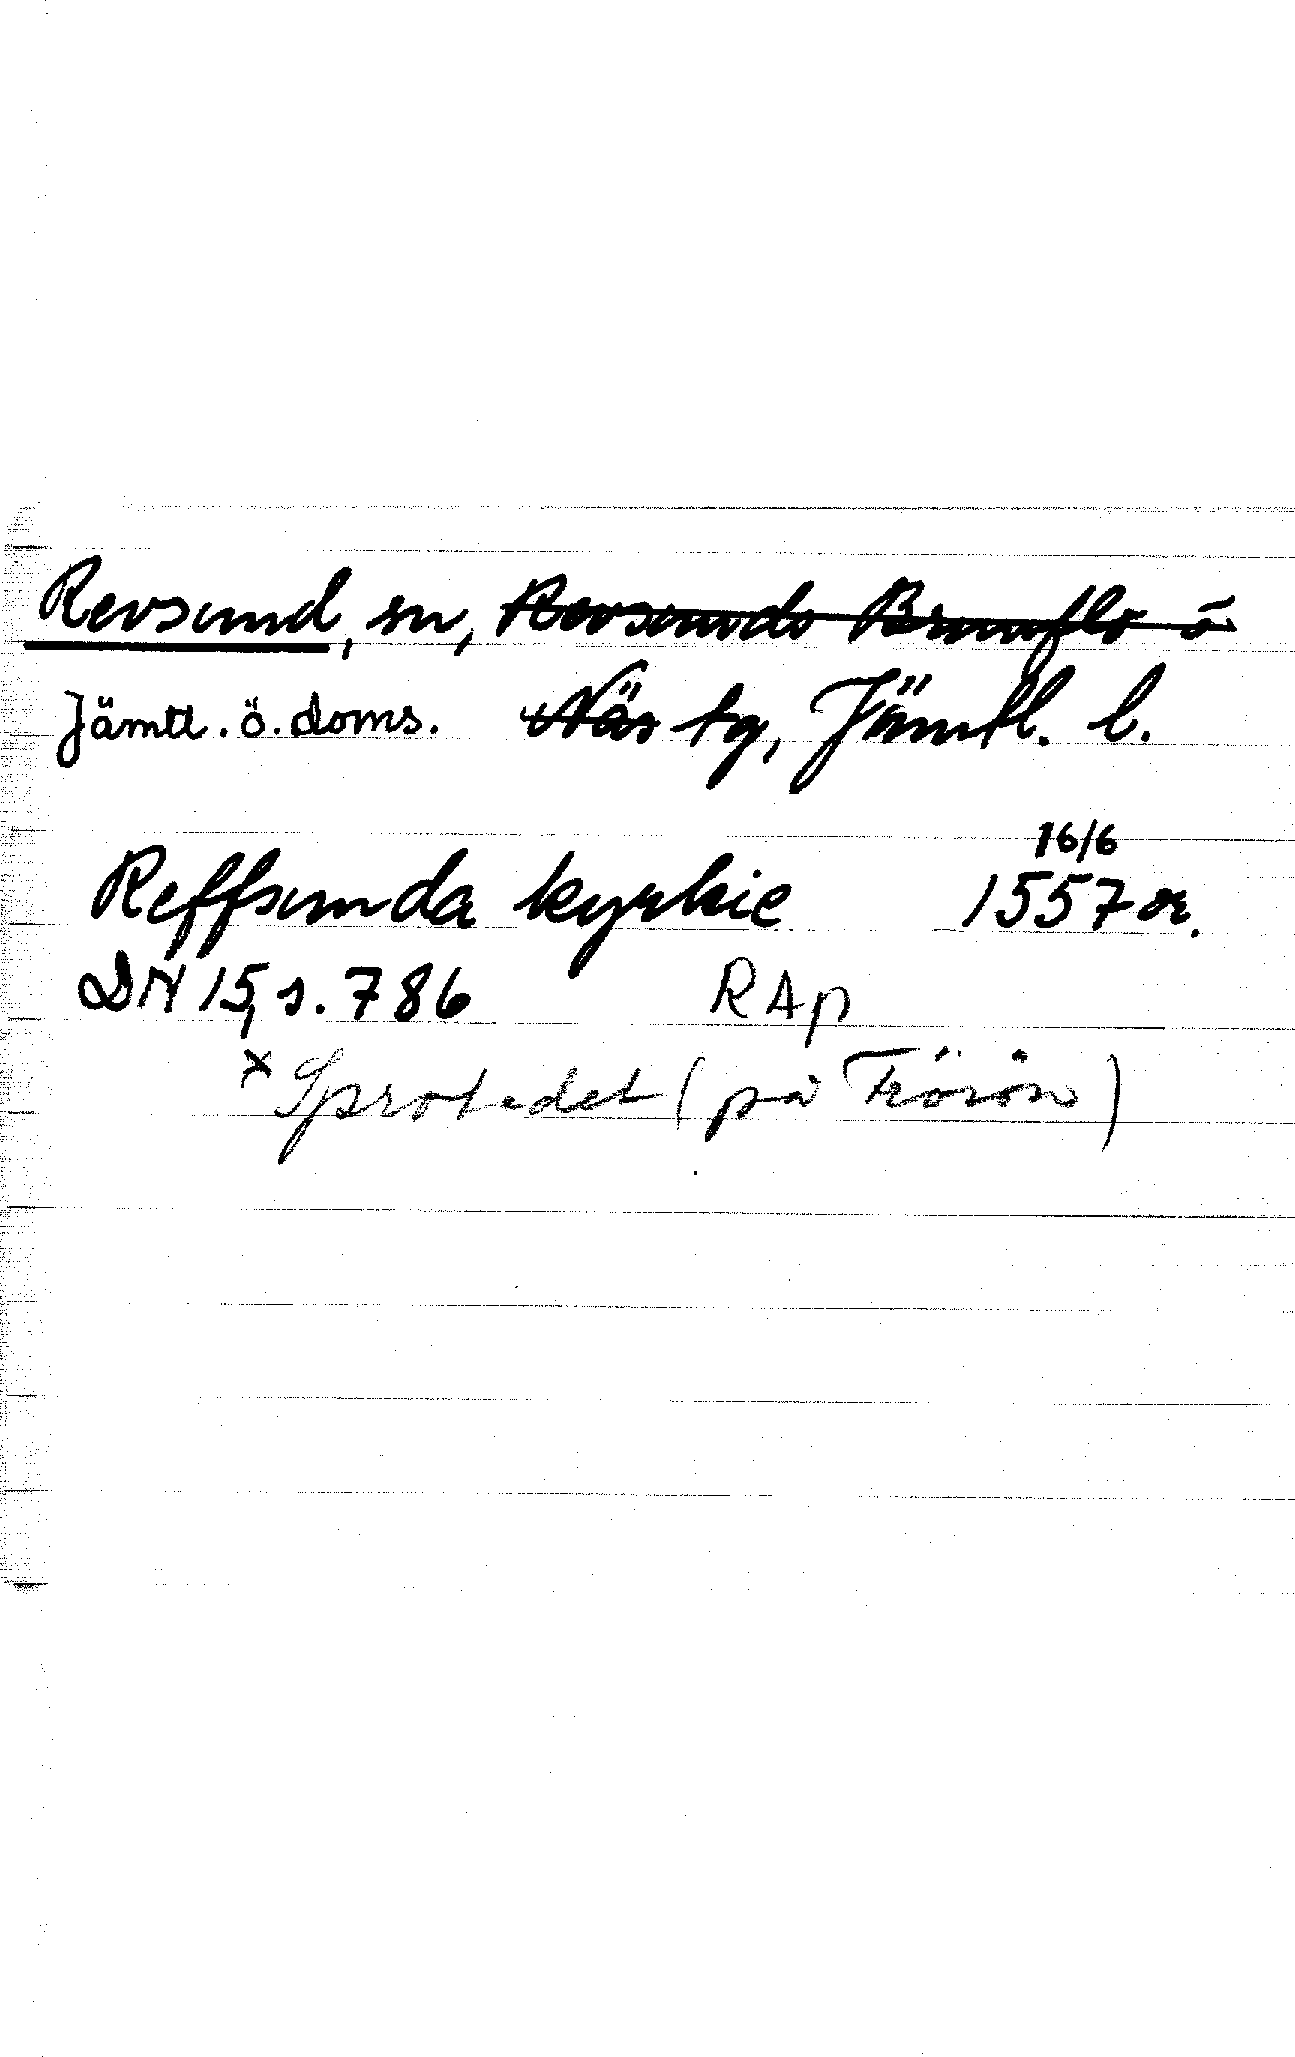 Revsund, sn, Revsunds Brunflo o
Jämtl. ö. doms. Näs tg, Jämtl. l.
16/6
Reffsunda kyrkie 1557 or.
DN 15, s. 786 RAp
x Sprotedet (på Frösön)